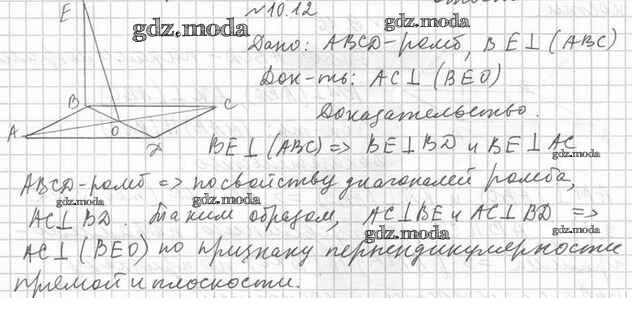 №10.12
gdz.moda
gdz.moda
E
Дано: ABCD-ромб, BE⊥(ABC)
Док-ть: AC⊥(BEO)
B C
Доказательство.
A O D
BE⊥(ABC) => BE⊥BD и BE⊥AC
gdz.moda
ABCD-ромб => по свойству диагоналей ромба,
gdz.moda gdz.moda
AC⊥BD. Таким образом, AC⊥BE и AC⊥BD =>
gdz.moda gdz.moda
AC⊥(BEO) по признаку перпендикулярности
прямой и плоскости.